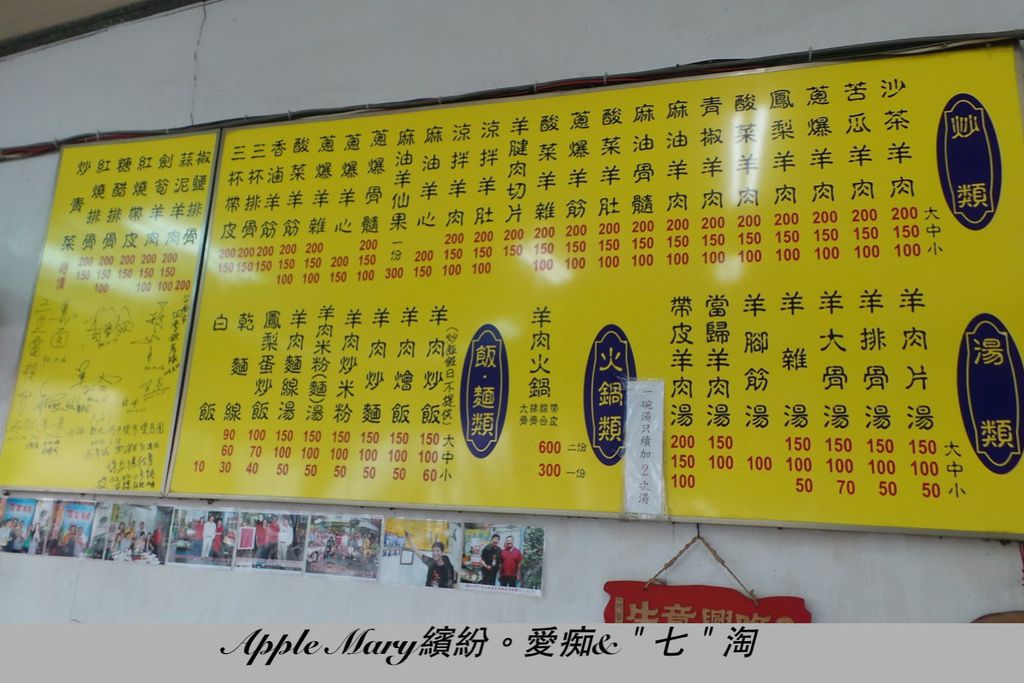 炒類
大
中
小
沙茶羊肉 200 150 100
苦瓜羊肉 200 150 100
蔥爆羊肉 200 150 100
鳳梨羊肉 200 150 100
酸菜羊肉 200 150 100
青椒羊肉 200 150 100
麻油羊肉 200 150 100
麻油骨髓 200 150 100
酸菜羊肚 200 150 100
蔥爆羊筋 200 150 100
酸菜羊雜 200 150 100
羊腱肉切片 200 150
涼拌羊肚 200 150 100
涼拌羊肉 200 150 100
麻油羊心 200 150
麻油羊仙果 一份 300
蔥爆骨髓 200 150 100
蔥爆羊心 200 150
蔥爆羊雜 200 150 100
酸菜羊筋 200 150 100
香滷羊筋 200 150
三杯排骨 200 150
三杯帶皮 200 150
湯類
大
中
小
羊肉片湯 150 100 50
羊排骨湯 150 100 50
羊大骨湯 150 100 70
羊雜湯 150 100 50
羊腳筋湯 100
當歸羊肉湯 150 100
帶皮羊肉湯 200 150 100
一碗湯只續加2次湯
火鍋類
羊肉火鍋
600 二份
300 一份
飯·麵類
(炒類假日不提供)
大
中
小
羊肉炒飯 150 100 60
羊肉燴飯 150 100 50
羊肉炒麵 150 100 50
羊肉炒米粉 150 100 50
羊肉米粉(麵)湯 150 100 50
羊肉麵線湯 150 100 50
鳳梨蛋炒飯 100 70 40
乾麵線 90 60 30
白飯 10
椒鹽排骨 200
蒜泥羊肉 200 150 100
劍筍羊肉 200 150 100
紅燒帶皮 200 150
糖醋排骨 200 150 100
紅燒排骨 200 150
炒青菜 時價
生意興隆
Apple Mary繽紛。愛痴&"七"淘